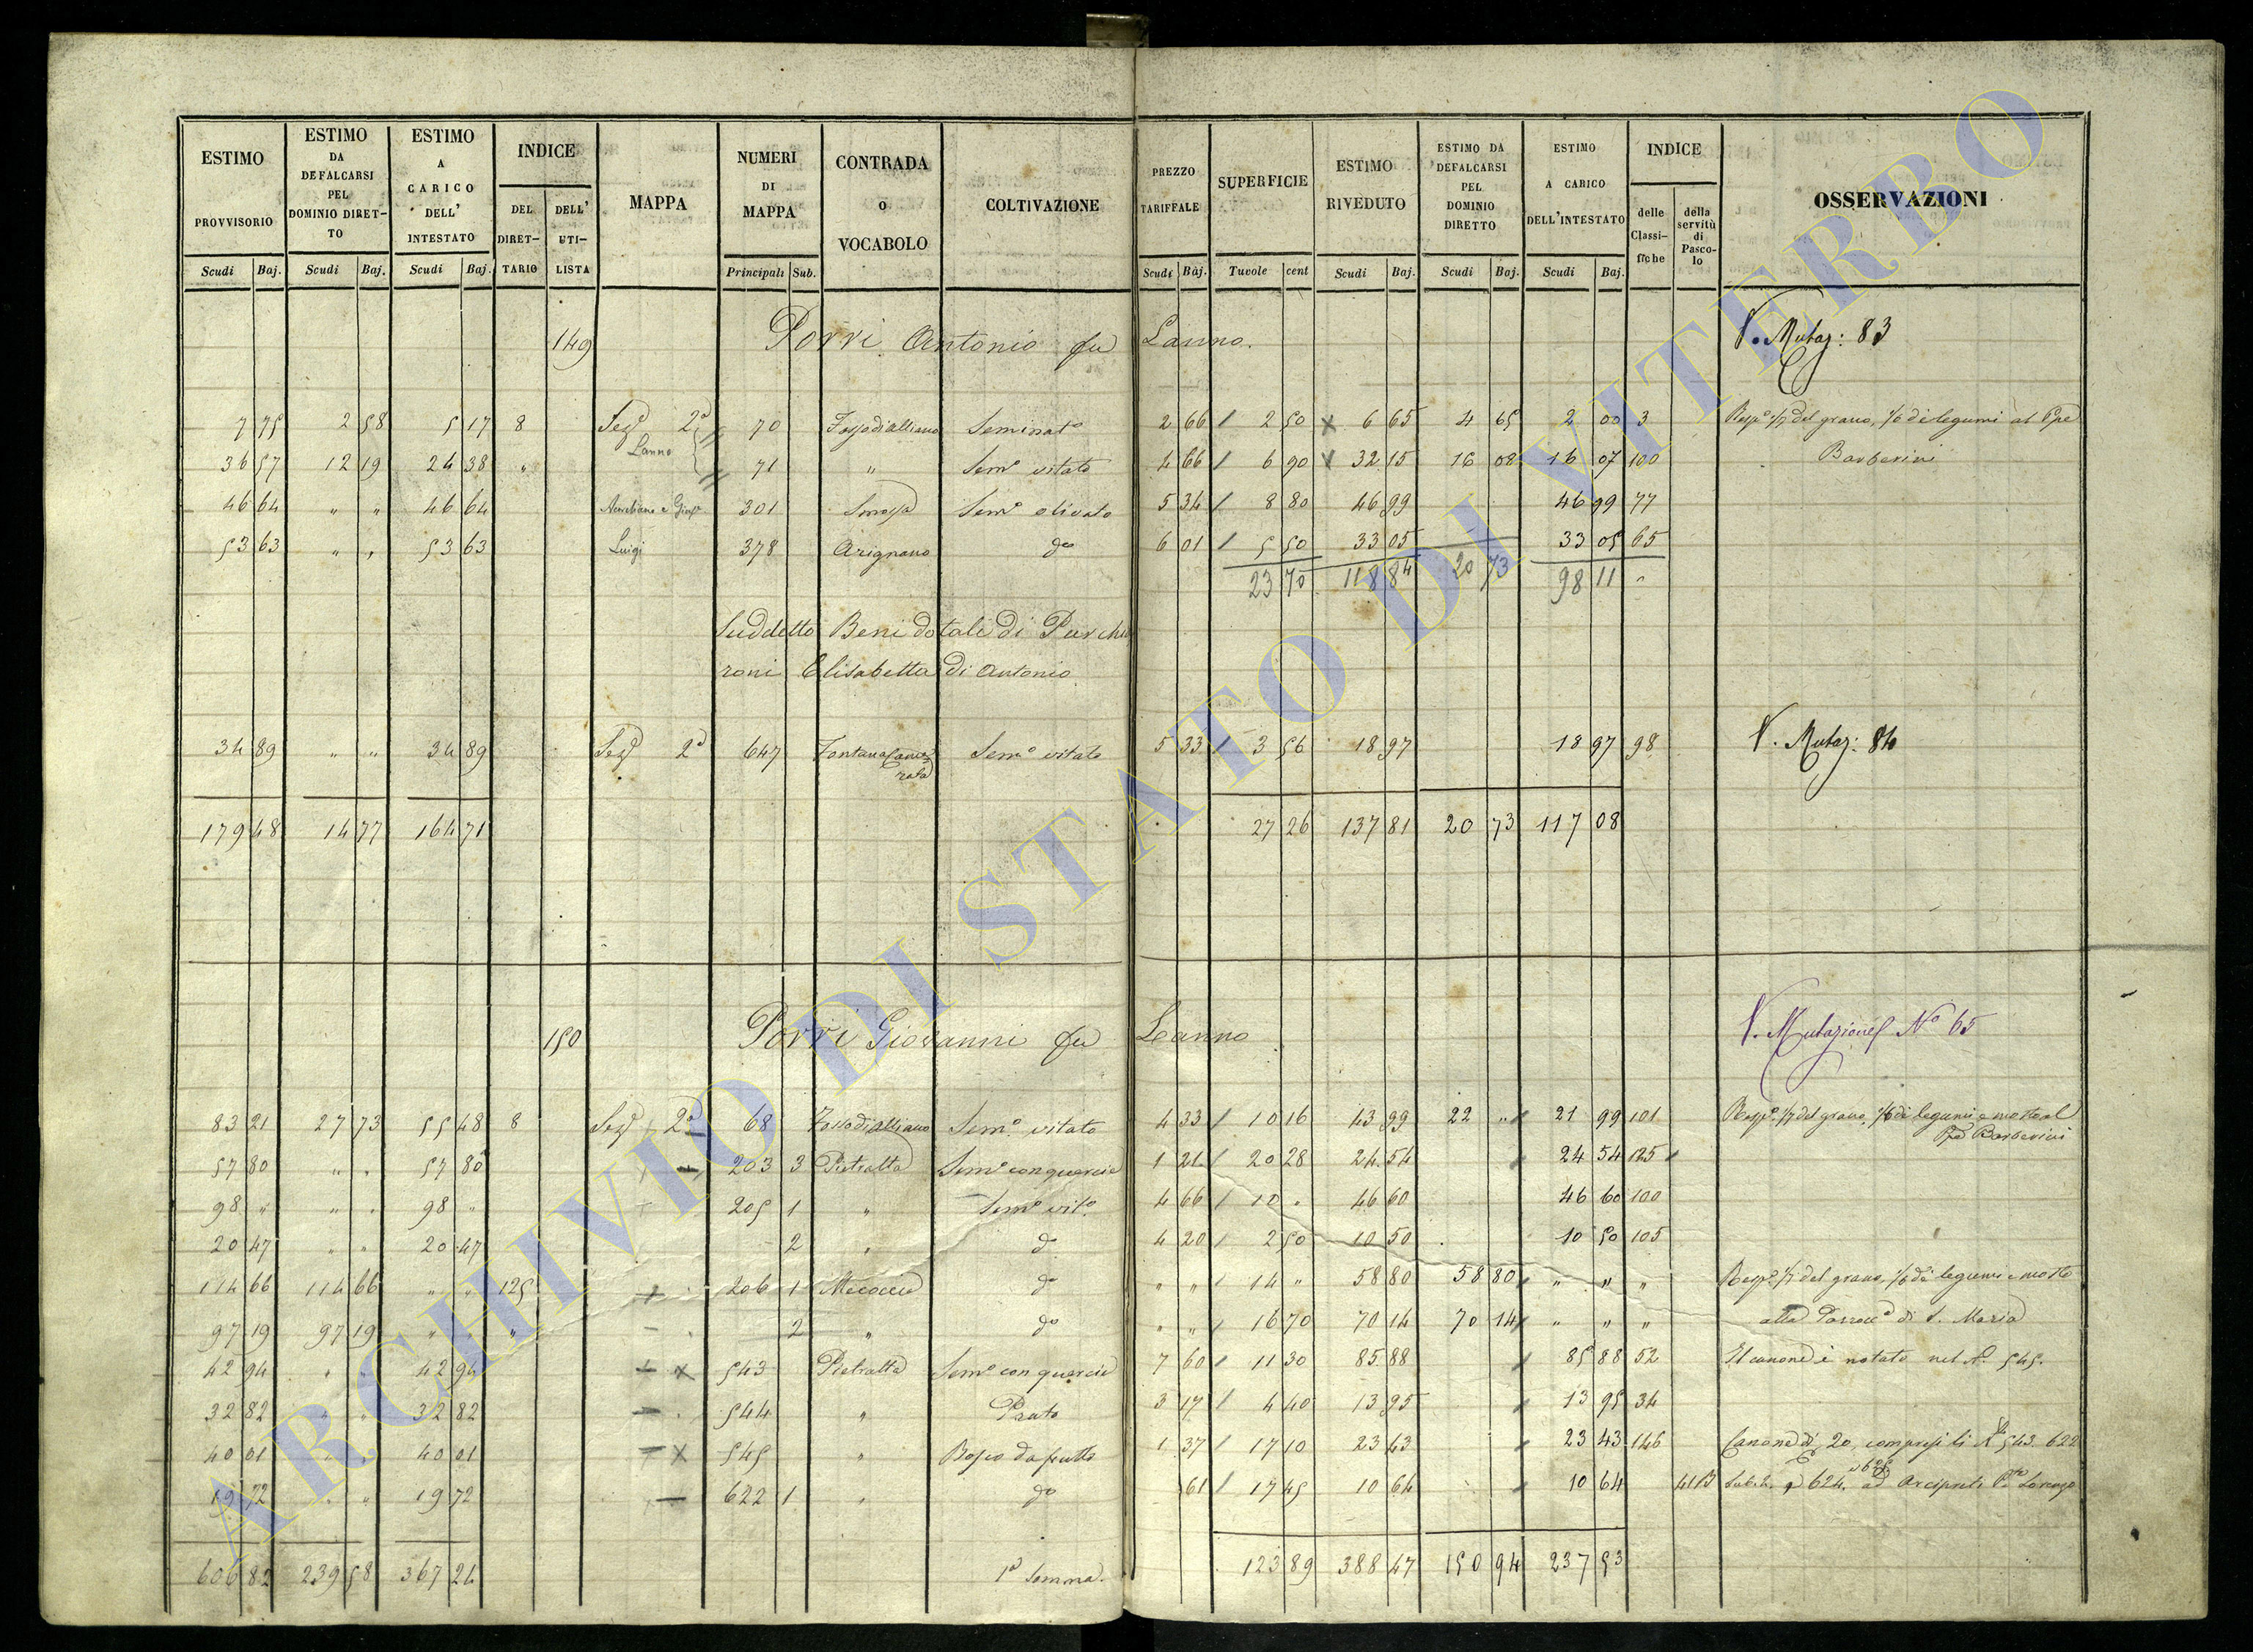 ESTIMO PROVVISORIO Scudi Baj. | ESTIMO DA DEFALCARSI PEL DOMINIO DIRETTO Scudi Baj. | ESTIMO A CARICO DELL' INTESTATO Scudi Baj. | INDICE DEL DIRETTARIO | DELL' UTILISTA | MAPPA | NUMERI DI MAPPA Principali Sub. | CONTRADA O VOCABOLO | COLTIVAZIONE | PREZZO TARIFFALE Scudi Baj. | SUPERFICIE Tavole cent | ESTIMO RIVEDUTO Scudi Baj. | ESTIMO DA DEFALCARSI PEL DOMINIO DIRETTO Scudi Baj. | ESTIMO A CARICO DELL'INTESTATO Scudi Baj. | INDICE delle Classifiche | della servitù di Pascolo | OSSERVAZIONI
149 Porri Antonio fu Lanno. V. Mutaz: 83
7 75 2 58 5 17 8 Sez 2a 70 Fosso di Alliano Seminato 2 66 / 2 50 x 6 65 4 65 2 00 3 Resp.e 1/7 del grano, 1/6 di legumi al Ppe
36 57 12 19 24 38 " Lanno 71 " Sem.o vitato 4 66 / 6 90 x 32 15 16 08 16 07 100 Barberini
46 64 " " 46 64 301 Sem.o olivato 5 34 / 8 80 46 99 46 99 77
53 63 " " 53 63 Luigi 378 Arignano do 6 01 / 5 50 33 05 33 05 65
23 70 118 84 20 73 98 11 "
Suddetto Beni dotali di
Elisabetta di Antonio
34 89 " " 34 89 Sez 2a 647 Fontana Sem.o vitato 5 33 / 3 56 18 97 18 97 98 V. Mutaz: 84
179 48 14 77 164 71 27 26 137 81 20 73 117 08
150 Porri Giovanni fu Lanno V. Mutazione N.o 65
83 21 27 73 55 48 8 Sez 2a 68 Fosso di Alliano Sem.o vitato 4 33 / 10 16 43 99 22 " 21 99 101 Resp.e 1/7 del grano, 1/6 di legumi e mosto al
Ppe Barberini
57 80 " " 57 80 203 3 Pietralta Sem.o con quercie 1 21 / 20 28 24 54 24 54 125
98 " " " 98 " 205 1 " Sem.o vit.o 4 66 / 10 " 46 60 46 60 100
20 47 " " 20 47 2 " do 4 20 / 2 50 10 50 10 50 105
114 66 114 66 " " 125 206 1 do " " / 14 " 58 80 58 80 " " " Resp.e 1/7 del grano, 1/6 di legumi e mosto
97 19 97 19 " " " 2 " do " " / 16 70 70 14 70 14 " " " alla Parroc.a di S. Maria
42 94 " " 42 94 x 543 Pietralta Sem.o con quercie 7 60 / 11 30 85 88 85 88 52 Il canone è notato nel N. 545.
32 82 " " 32 82 544 " Prato 3 17 / 4 40 13 95 13 95 34
40 01 " " 40 01 x 545 " Bosco da frutto 1 37 / 17 10 23 43 23 43 146 Canone di 20, compresi li N. 543. 622
19 72 " " 19 72 622 1 " do 61 / 17 45 10 64 10 64 624. Arcipret. Lorenzo
606 82 239 58 367 24 1a Somma. 123 89 388 47 150 94 237 53
ARCHIVIO DI STATO DI VITERBO